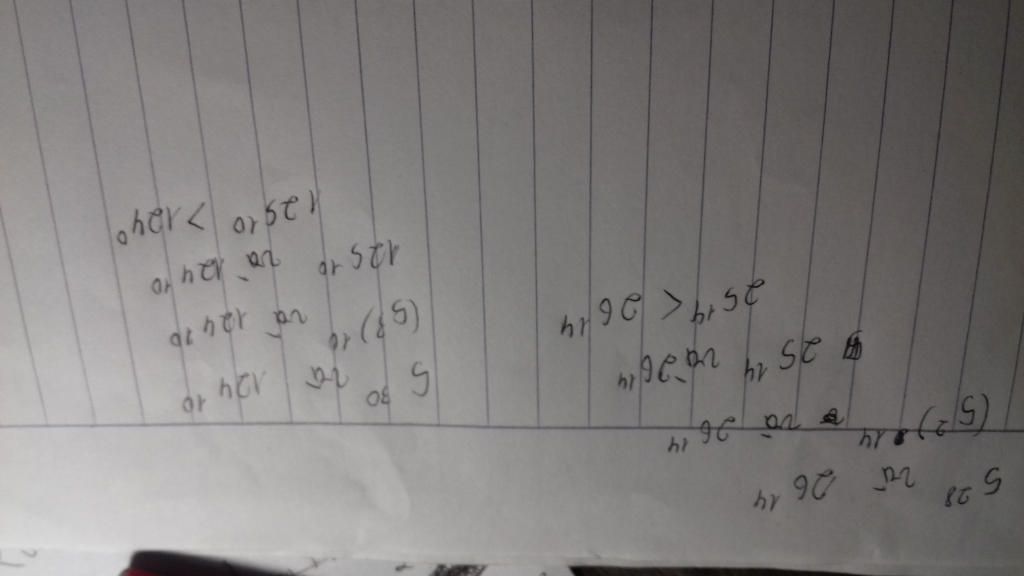 5²⁸ và 26¹⁴
(5²)¹⁴ và 26¹⁴
25¹⁴ và 26¹⁴
25¹⁴ < 26¹⁴
5³⁰ và 124¹⁰
(5³)¹⁰ và 124¹⁰
125¹⁰ và 124¹⁰
125¹⁰ > 124⁰